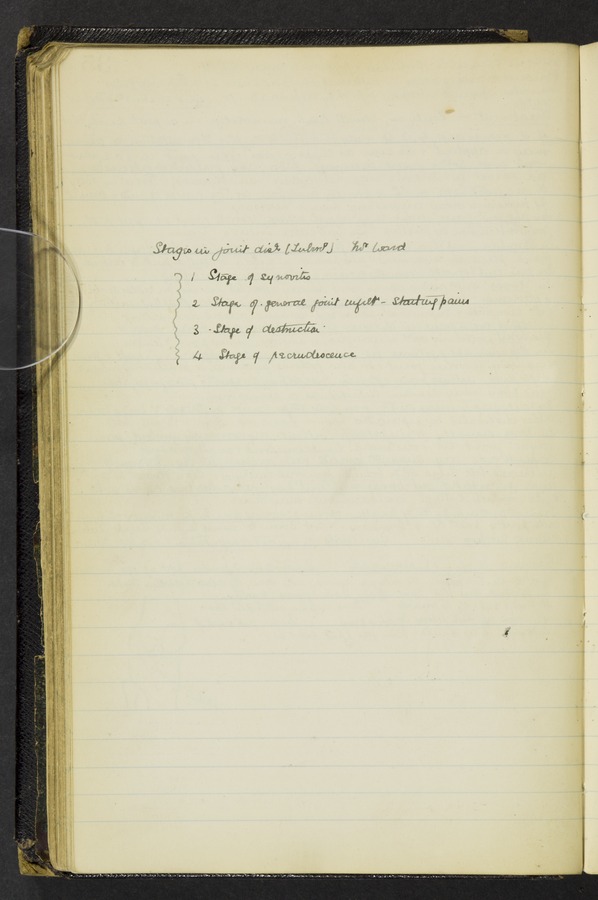 Stages in joint dis.e (Tubrs) Mr Ward
1 Stage of synovitis
2 Stage of general joint infilt - Starting pains
3 Stage of destruction
4 Stage of recrudescence